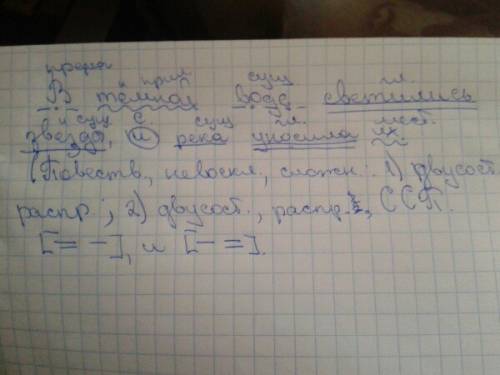 предл. прил. сущ. гл.
В тёмной воде светились
сущ. с. сущ. гл. мест.
звезды, и река уносила их.
(Повеств., невоскл., сложн.: 1) двусост.,
распр.; 2) двусост., распр., ССП.
[= –], и [– =].